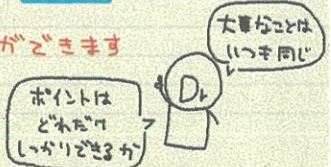 ができます
大事なことは
いつも同じ
Dr
ポイントは
どれだけ
しっかりできるか